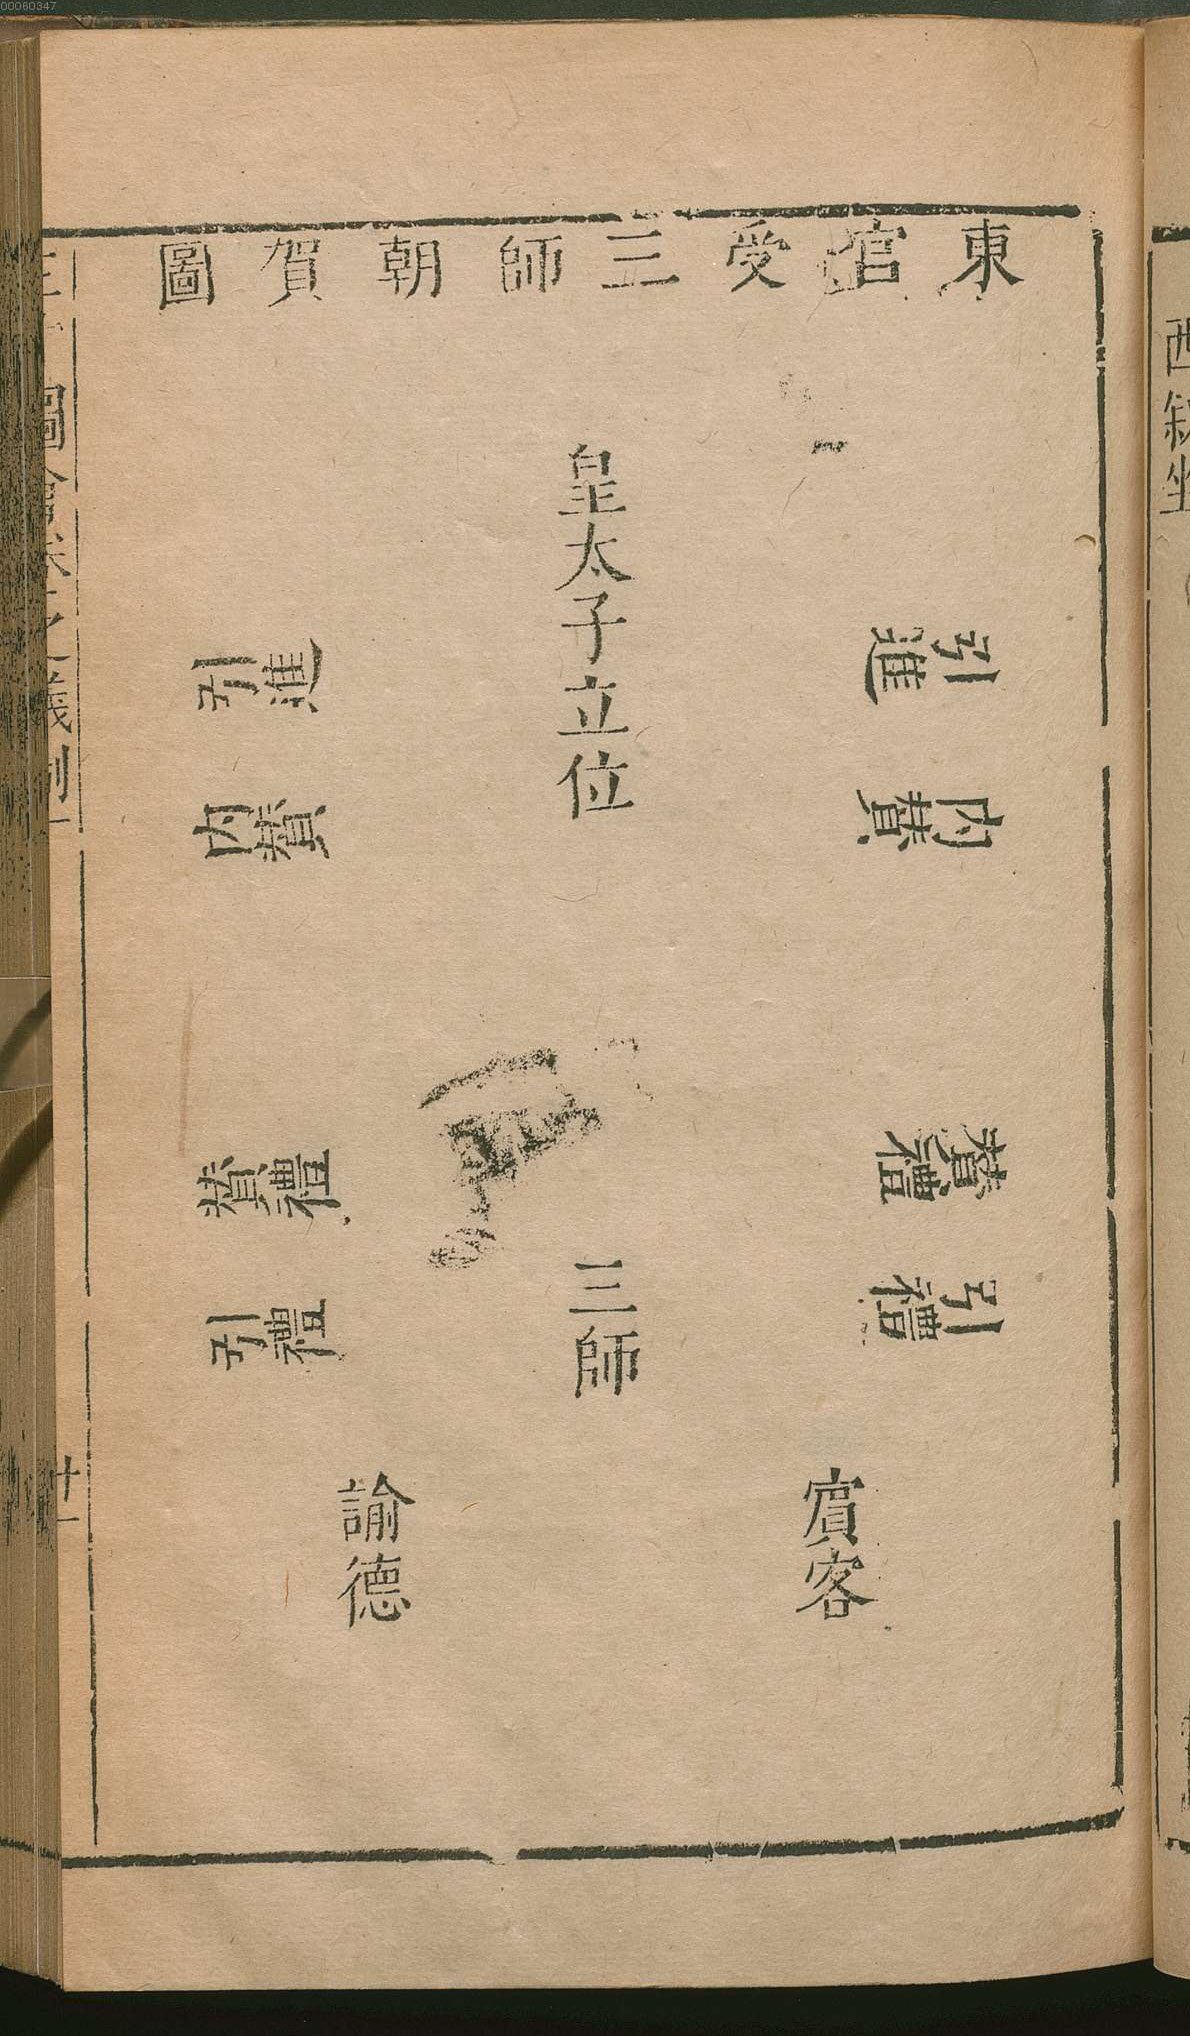 00060347
東宮受三師朝賀圖
引進
內贊
贊禮
引禮
賓客
皇太子立位
三師
引進
內贊
贊禮
引禮
諭德
圖會
儀制
十一
西